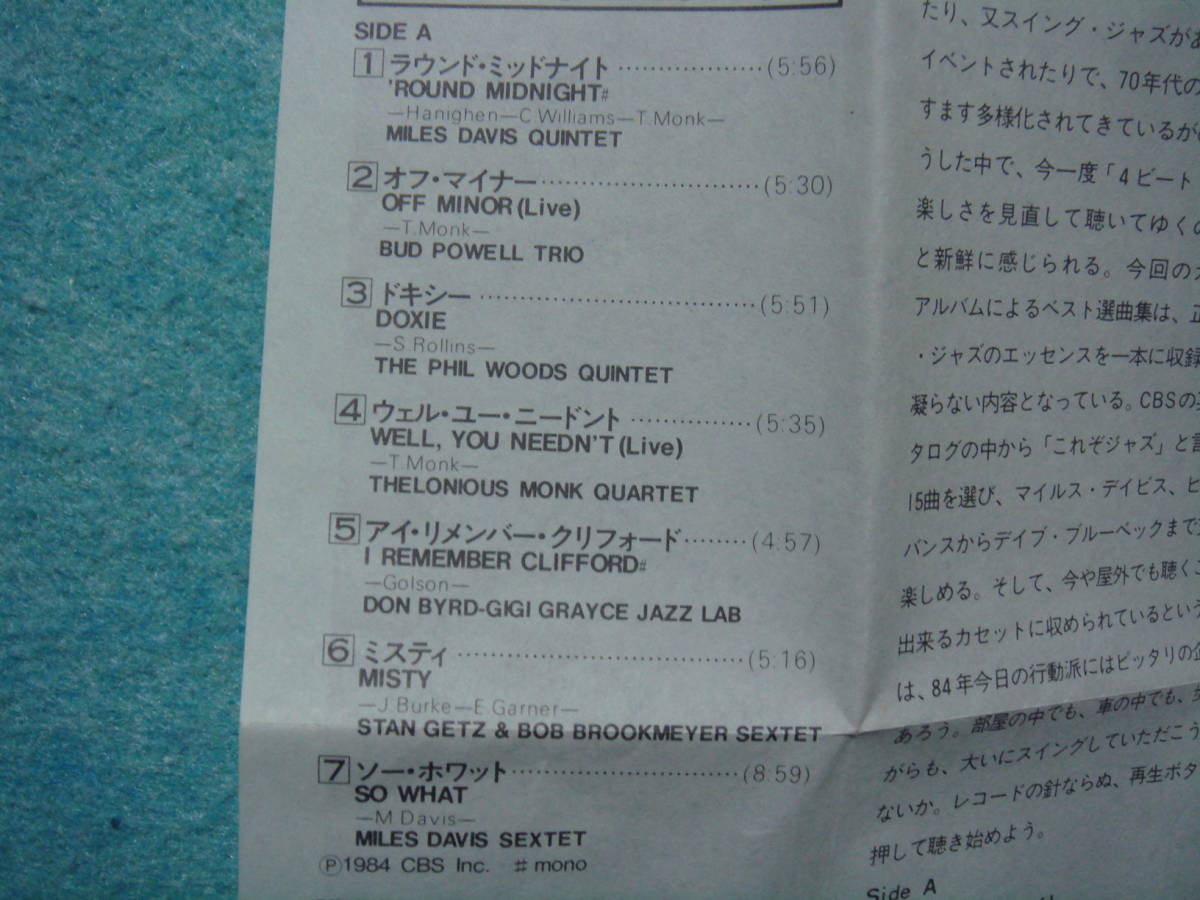 SIDE A
1 ラウンド・ミッドナイト ……………… (5:56)
'ROUND MIDNIGHT♯
—Hanighen—C.Williams—T.Monk—
MILES DAVIS QUINTET
2 オフ・マイナー …………………………… (5:30)
OFF MINOR (Live)
—T.Monk—
BUD POWELL TRIO
3 ドキシー …………………………………… (5:51)
DOXIE
—S.Rollins—
THE PHIL WOODS QUINTET
4 ウェル・ユー・ニードント …………… (5:35)
WELL, YOU NEEDN'T (Live)
—T.Monk—
THELONIOUS MONK QUARTET
5 アイ・リメンバー・クリフォード ……… (4:57)
I REMEMBER CLIFFORD♯
—Golson—
DON BYRD-GIGI GRAYCE JAZZ LAB
6 ミスティ …………………………………… (5:16)
MISTY
—J.Burke—E.Garner—
STAN GETZ & BOB BROOKMEYER SEXTET
7 ソー・ホワット ………………………… (8:59)
SO WHAT
—M.Davis—
MILES DAVIS SEXTET
Ⓟ1984 CBS Inc. ♯mono
たり、又スイング・ジャズがあ
イベントされたりで、70年代の
すます多様化されてきているが
うした中で、今一度「4ビート
楽しさを見直して聴いてゆくの
と新鮮に感じられる。今回の
アルバムによるベスト選曲集は、正
・ジャズのエッセンスを一本に収録
凝らない内容となっている。CBSの
タログの中から「これぞジャズ」と言
15曲を選び、マイルス・デイビス、ビ
バンスからデイブ・ブルーベックまで
楽しめる。そして、今や屋外でも聴くこ
出来るカセットに収められているという
は、84年今日の行動派にはピッタリの企
あろう。部屋の中でも、車の中でも、
がらも、大いにスイングしていただこう
ないか。レコードの針ならぬ、再生ボタ
押して聴き始めよう。
Side A